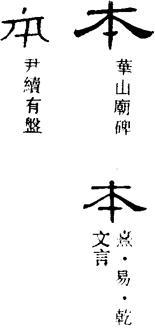 本
華山廟碑
本
熹·易·乾
文言
本
尹續有盤